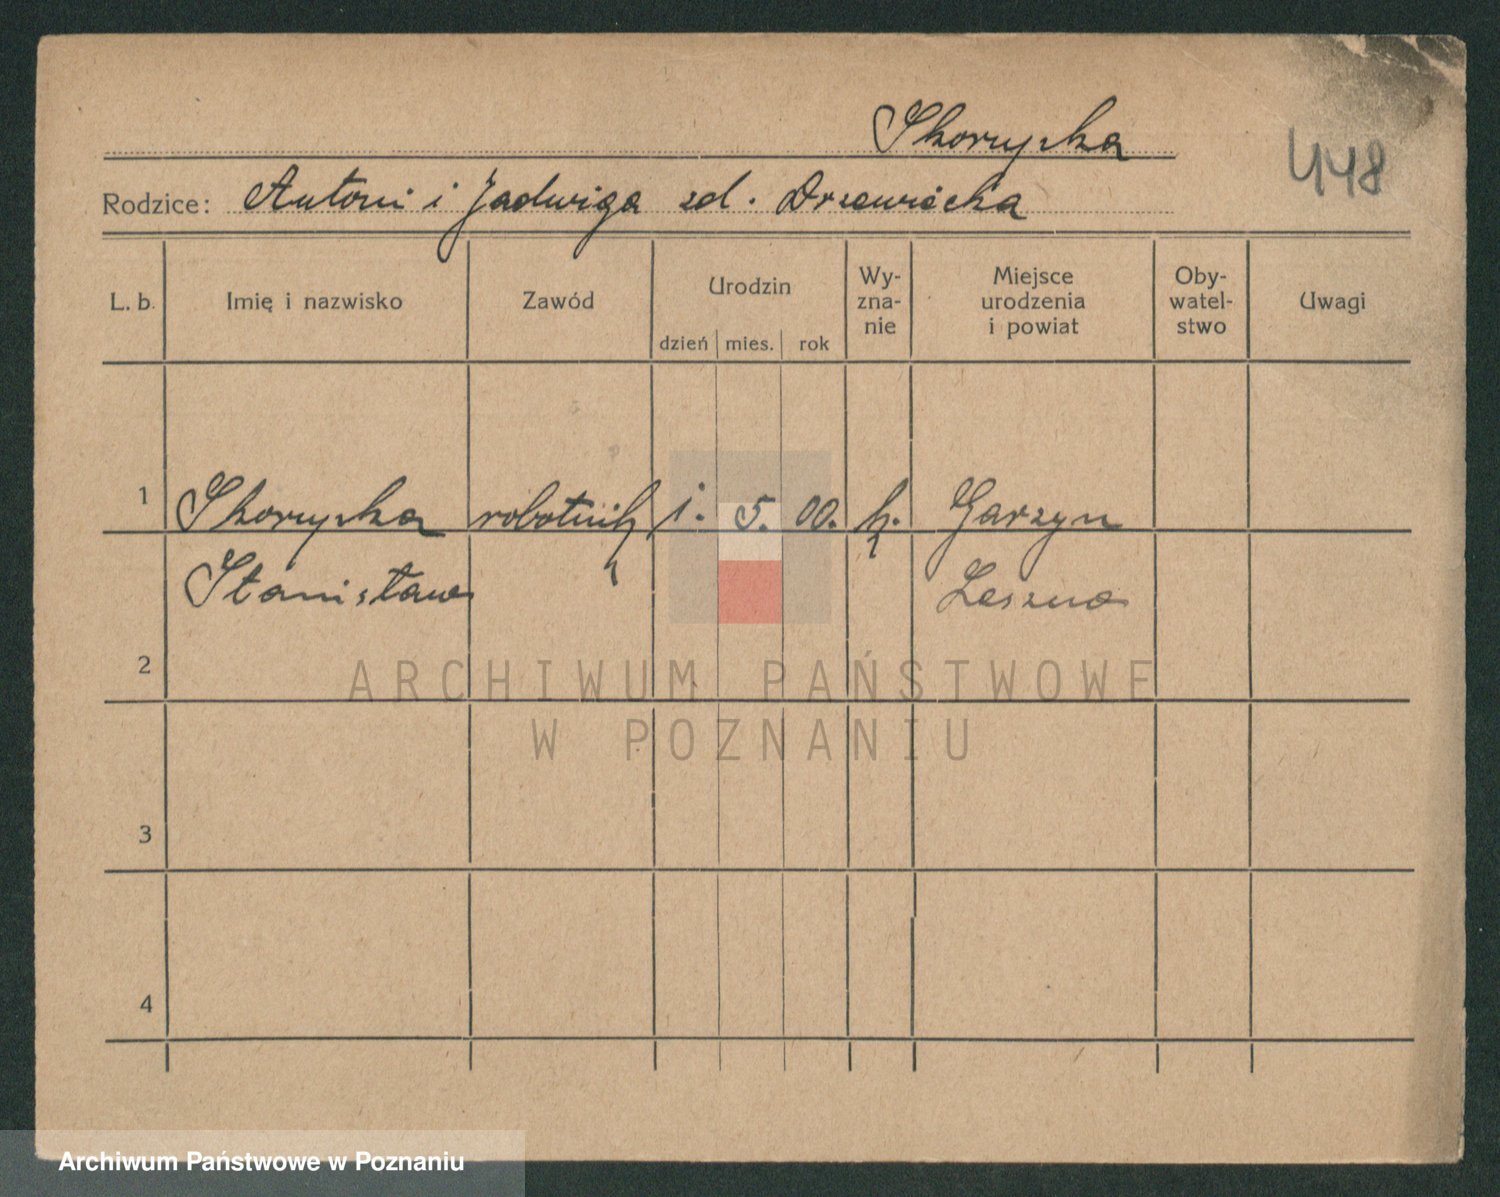 Skorupka
448
Rodzice: Antoni i Jadwiga zd. Drzewiecka
L. b. Imię i nazwisko Zawód Urodzin dzień mies. rok Wy-zna-nie Miejsce urodzenia i powiat Oby-watel-stwo Uwagi
1 Skorupka robotnik 1. 5. 00. k. Garzyn
Stanisław Leszno
2
ARCHIWUM PAŃSTWOWE
W POZNANIU
3
4
Archiwum Państwowe w Poznaniu